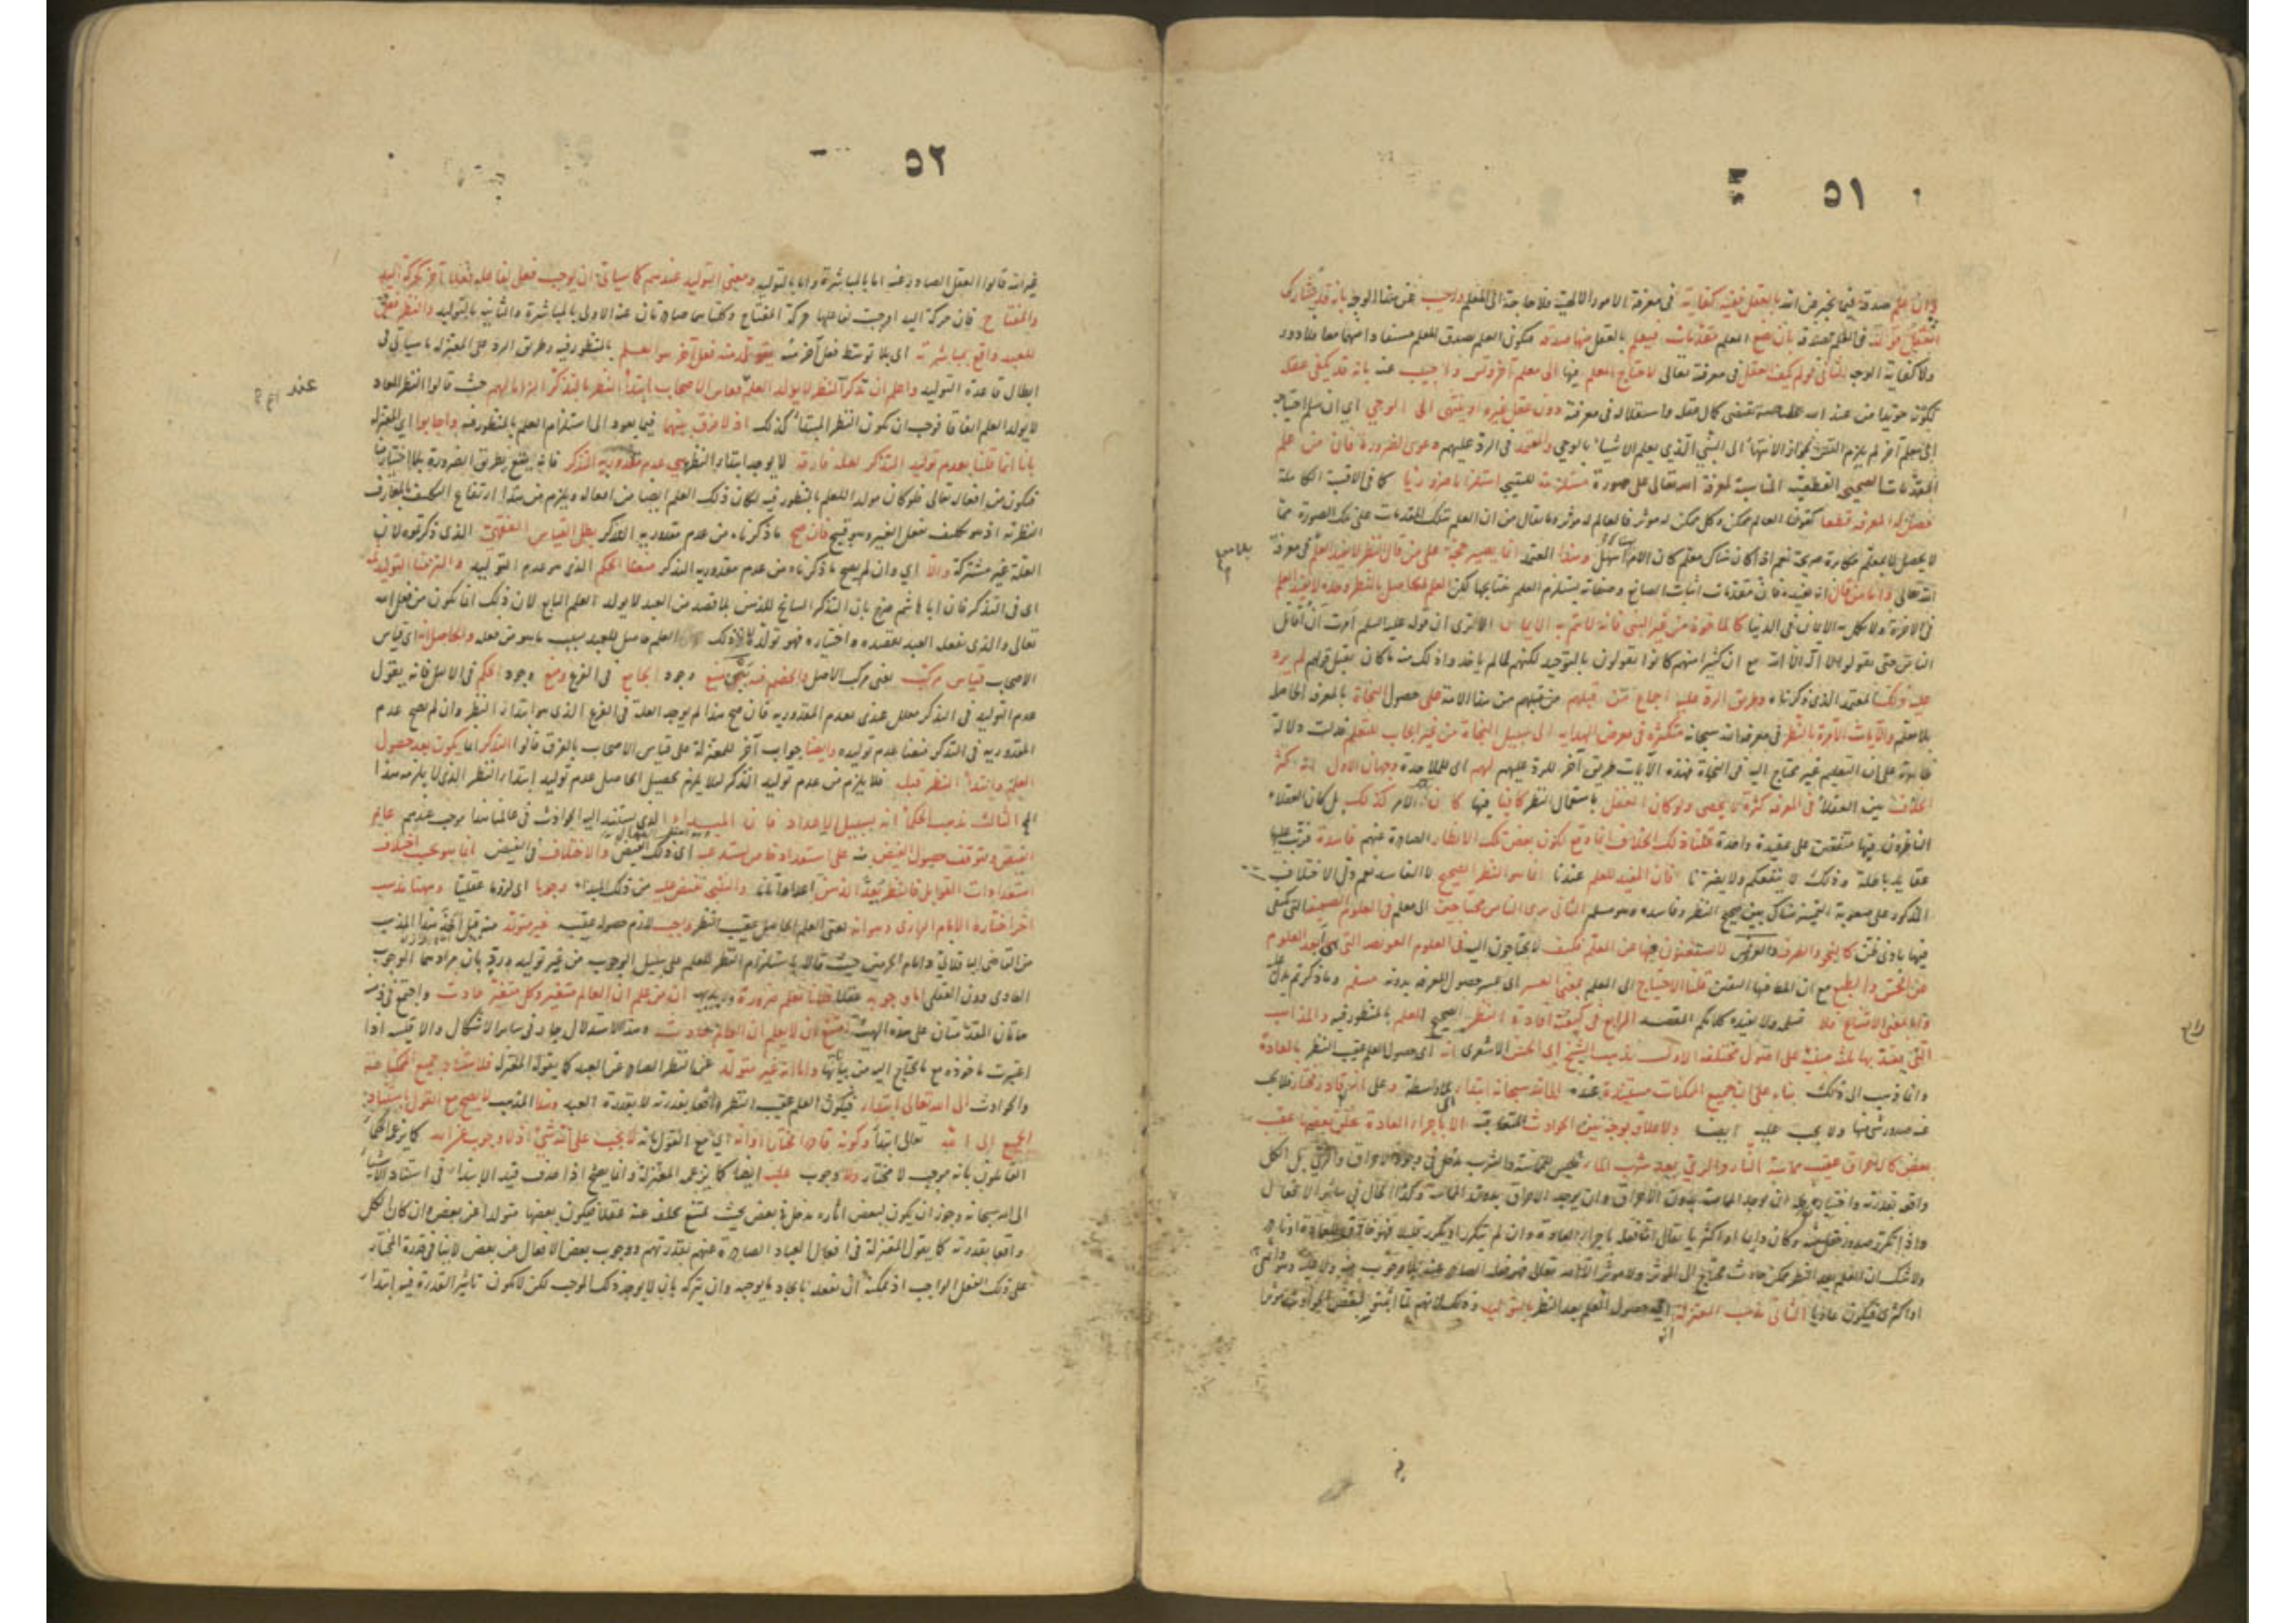 ٥١
وان علم صدقه فيما يخبر عن الله بالعقل ففيه كفاية في معرفة الامور الالهية فلا حاجة الى المعلم واجيب عن هذا الوجه بانه قد يشارك
العقل قوله في العلم بصدقه بان يضع المعلم مقدمات فيعلم بالعقل منها صدقه فيكون العلم بصدق المعلم مستفادا منهما معا فلا دور
ولا كفاية الوجه الثاني لو لم يكف العقل في معرفته تعالى لاحتاج المعلم فيها الى معلم آخر وتس ولا جيب عنه بانه قد يكفي عقله
لكونه مؤيدا من عند الله بخاصية تقتضي كمال عقله واستقلاله في معرفته دون عقل غيره او ينتهي الى الوحي اي ان سلم احتياجه
الى معلم آخر لم يلزم التس لجواز الانتهاء الى النبي الذي يعلم الاشياء بالوحي والمعتمد في الرد عليهم دعوى الضرورة فان من علم
المقدمات الصحيحة القطعية المناسبة لمعرفة الله تعالى على صورة مستلزمة للنتيجة استلزاما ضروريا كما في الاقيسة الكاملة
حصل له المعرفة قطعا كقولنا العالم ممكن وكل ممكن له مؤثر فالعالم له مؤثر وما يقال من ان العلم بتلك المقدمات على تلك الصورة مما
لا يحصل الا بمعلم مكابرة صريحة نعم اذا كان هناك معلم كان الامر اسهل وهذا المعتمد انما يصير حجة على من قال النظر لا يفيد العلم في معرفة
الله تعالى واما من قال انه يفيده فان مقدمات اثبات الصانع وصفاته يستلزم العلم بنتايجها لكن العلم الحاصل بالنظر وحده لا يفيد العلم
في الآخرة ولا يكمل به الايمان في الدنيا كالمأخوذ من غير النبي فانه لا يتم به الايمان الا ترى ان قوله عليه السلم امرت ان اقاتل
الناس حتى يقولوا لا اله الا الله مع ان كثيرا منهم كانوا يقولون بالتوحيد لكنهم لما لم يأخذوا ذلك منه ما كان يقبل قولهم لم يرد
عليه ذلك المعتمد الذي ذكرناه وطريق الرد عليه اجماع من قبلهم من هذه الامة على حصول النجاة بالمعرفة الحاصلة
بلا معلم والآيات الآمرة بالنظر في معرفة الله سبحانه متكثرة في معرض الهداية الى سبيل النجاة من غير ايجاب للتعلم فدلت دلالة
ظاهرة على ان التعليم غير محتاج اليه في النجاة فهذه الآيات طريق آخر للرد عليهم لهم اي للملاحدة وجهان الاول انه كثر
الخلاف بين العقلاء في المعرفة كثرة لا تحصى ولو كان العقل باستعمال النظر كافيا فيها لما كان الامر كذلك بل كان العقلاء
الناظرون فيها متفقين على عقيدة واحدة قلنا ذلك الخلاف انما وقع لكون بعض تلك الانظار الصادرة عنهم فاسدة فترتب عليها
عقايد باطلة وذلك لا ينفعكم ولا يضرنا فان المفيد للعلم عندنا انما هو النظر الصحيح لا الفاسد نعم دل الاختلاف
المذكور على صعوبة التمييز هناك بين صحيح النظر وفاسده وهو مسلم الثاني نرى الناس محتاجين الى معلم في العلوم الضعيفة التي يكفي
فيها بادنى فن كالنحو والصرف والعروض لا يستغنون فيها عن المعلم فكيف لا يحتاجون اليه في العلوم العويصة التي هي ابعد العلوم
عن الحس والطبع مع ان المطلوب فيها اليقين قلنا الاحتياج الى المعلم بمعنى العسر اي عسر حصول المعرفة بدونه مسلم وما ذكرتم يدل عليه
واما بمعنى الامتناع فلا نسلم ولا يفيده كلامكم المقصد الرابع في كيفية افادة النظر الصحيح للعلم بالمنظور فيه والمذاهب
التي يعتد بها ثلث مبنية على اصول مختلفة الاول مذهب الشيخ ابي الحسن الاشعري انه اي حصول العلم عقيب النظر بالعادة
وانما ذهب الى ذلك بناء على ان جميع الممكنات مستندة عنده الى الله سبحانه ابتداء بلا واسطة وعلى انه قادر مختار فلا يجب
عنه صدور شيء منها ولا يجب عليه ايضا ولا علاقة بوجه بين الحوادث المتعاقبة الا باجراء العادة بخلق بعضها عقيب
بعض كالاحراق عقيب مماسة النار والري بعد شرب الماء فليس للمماسة والشرب مدخل في وجود الاحراق والري بل الكل
واقع بقدرته واختياره فله ان يوجد المماسة بدون الاحراق وان يوجد الاحراق بدون المماسة وكذا الحال في سائر الافعال
واذا تكرر صدور فعل منه وكان دايما او اكثريا يقال انه فعله باجراء العادة وان لم يتكرر او تكرر قليلا فهو خارق للعادة او نادر
ولا شك ان العلم بعد النظر ممكن حادث محتاج الى المؤثر ولا مؤثر الا الله تعالى فهو فعله الصادر عنه بلا وجوب منه ولا عليه وهو دائمي
او اكثري فيكون عاديا الثاني مذهب المعتزلة انه اي حصول العلم بعد النظر بالتوليد وذلك لانهم لما اثبتوا لبعض الحوادث مؤثرا
٥٢
غير الله قالوا الفعل الصادر عنه اما بالمباشرة واما بالتوليد ومعنى التوليد عندهم كما سيأتي ان يوجب فعل لفاعله فعلا آخر كحركة اليد
والمفتاح فان حركة اليد اوجبت لفاعلها حركة المفتاح وكلتاهما صادرتان عنه الاولى بالمباشرة والثانية بالتوليد والنظر فعل
للعبد واقع بمباشرته اي بلا توسط فعل آخر منه يتولد منه فعل آخر هو العلم بالمنظور فيه وطريق الرد على المعتزلة ما سيأتي في
ابطال قاعدة التوليد واعلم ان تذكر النظر لا يولد العلم فقاس الاصحاب ابتداء النظر بالتذكر الزاما لهم حيث قالوا النظر المعاد
لا يولد العلم اتفاقا فوجب ان يكون النظر المبتدأ كذلك اذ لا فرق بينهما فيما يعود الى استلزام العلم بالمنظور فيه واجابوا اي المعتزلة
بانا انما قلنا بعدم توليد التذكر لعلة فارقة لا توجد في ابتداء النظر هي عدم مقدورية التذكر فانه يقع بطريق الضرورة بلا اختيارنا
فيكون من افعاله تعالى فلو كان مولدا للعلم بالمنظور فيه لكان ذلك العلم ايضا من افعاله ويلزم من هذا ارتفاع التكليف بالمعارف
النظرية اذ هو تكليف بفعل الغير وهو قبيح فان صح ما ذكرناه من عدم مقدورية التذكر بطل القياس الفقهي الذي ذكرتموه لان
العلة غير مشتركة والا اي وان لم يصح ما ذكرناه من عدم مقدورية التذكر منعنا الحكم الذي هو عدم التوليد والتزمنا التوليد ثمه
اي في التذكر فان ابا هاشم صرح بان التذكر السانح للذهن بلا قصد من العبد لا يولد العلم التابع لان ذلك انما يكون من فعل الله
تعالى والذي يفعله العبد بقصده واختياره فهو تولد ذلك العلم حاصل للعبد بسبب ما هو من فعله والحاصل انه اي قياس
الاصحاب قياس مركب يعني مركب الاصل والخصم فيه بين منع وجود الجامع في الفرع ومنع وجود الحكم في الاصل فانه يقول
عدم التوليد في التذكر معلل عندي بعدم المقدورية فان صح هذا لم يوجد العلة في الفرع الذي هو ابتداء النظر وان لم يصح عدم
المقدورية في التذكر منعنا عدم توليده وايضا جواب آخر للمعتزلة على قياس الاصحاب بالفرق قالوا التذكر انما يكون بعد حصول
العلم وابتداء النظر قبله فلا يلزم من عدم توليد التذكر لئلا يلزم تحصيل الحاصل عدم توليد ابتداء النظر الذي لا يلزمه هذا
المح الثالث مذهب الحكماء انه بسبيل الاعداد فان المبدأ الذي يستند اليه الحوادث في عالمنا هذا موجب عندهم عام
الفيض ويتوقف حصول الفيض منه على استعداد خاص يستدعيه اي ذلك الفيض والاختلاف في الفيض انما هو بحسب اختلاف
استعدادات القوابل فالنظر يعد الذهن اعدادا تاما والنتيجة تفيض عليه من ذلك المبدأ وجوبا اي لزوما عقليا وههنا مذهب
آخر اختاره الامام الرازي وهو انه يعني العلم الحاصل عقيب النظر واجب لازم حصوله عقيبه غير متولد منه قيل اخذ هذا المذهب
من القاضي الباقلاني وامام الحرمين حيث قالا باستلزام النظر للعلم على سبيل الوجوب من غير توليد ورد بان مرادهما الوجوب
العادي دون العقلي اما وجوبه عقلا فلانا نعلم ضرورة وبديهة ان من علم ان العالم متغير وكل متغير حادث واجتمع في ذهنه
هاتان المقدمتان على هذه الهيئة امتنع ان لا يعلم ان العالم حادث وهذا الاستدلال جار في سائر الاشكال والاقيسة اذا
اعتبرت مأخوذة مع ما يحتاج اليه من بيانها واما انه غير متولد عن النظر الصادر عن العبد كما يقوله المعتزلة فلاستناد جميع الممكنات
والحوادث الى الله تعالى ابتداء فيكون العلم عقيب النظر واقعا بقدرته لا بقدرة العبد وهذا المذهب لا يصح مع القول باستناد
الجميع الى الله تعالى ابتداء وكونه قادرا مختارا وانه اي مع القول بانه لا يجب على الله شيء اذ لا وجوب عن الله كما يزعم الحكماء
القائلون بانه موجب لا مختار ولا وجوب عليه ايضا كما يزعم المعتزلة وانما يصح اذا حذف قيد الابتداء في استناد الاشياء
الى الله سبحانه وجوز ان يكون لبعض آثاره مدخل في بعض بحيث يمتنع تخلفه عنه عقلا فيكون بعضها متولدا عن بعض وان كان الكل
واقعا بقدرته كما يقول المعتزلة في افعال العباد الصادرة عنهم بقدرتهم ووجوب بعض الافعال عن بعض لا ينافي قدرة المختار
على ذلك الفعل الواجب اذ يمكنه ان يفعله بايجاد ما يوجبه وان يتركه بان لا يوجد ذلك الموجب لكن لا يكون تأثير القدرة فيه ابتداء